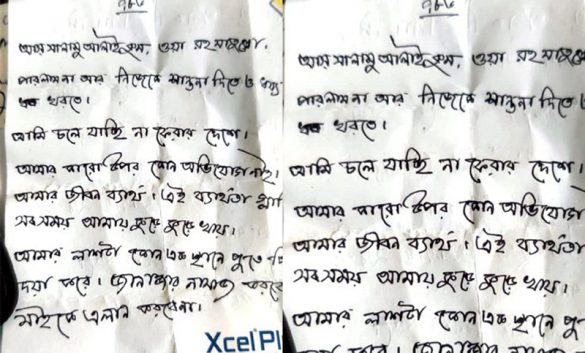 ৭৮৬
আস সালামু আলাইকুম, ওয়া রহমাতুল্লা.
পারলাম না আর নিজেকে শান্তনা দিতে ও
খবরে।
আমি চলে যাচ্ছি না ফেরার দেশে।
আমার কারো উপর কোন অভিযোগ নাই।
আমার জীবন ব্যার্থ। এই ব্যার্থতা
সব সময় আমায় কুড়ে কুড়ে খায়।
আমার লাশটা কোন এক স্থানে পুতে
দয়া করে। জানাজার নামাজ
মাইকে এলান করবেনা।
Xcel Pl
৭৮৬
আস সালামু আলাইকুম, ওয়া রহমাতুল্লা
পারলাম না আর নিজেকে শান্তনা দিতে
খবরে।
আমি চলে যাচ্ছি না ফেরার দেশে।
আমার কারো উপর কোন অভিযোগ
আমার জীবন ব্যার্থ। এই ব্যার্থতা
সব সময় আমায় কুড়ে কুড়ে খায়।
আমার লাশটা কোন এক স্থানে পু